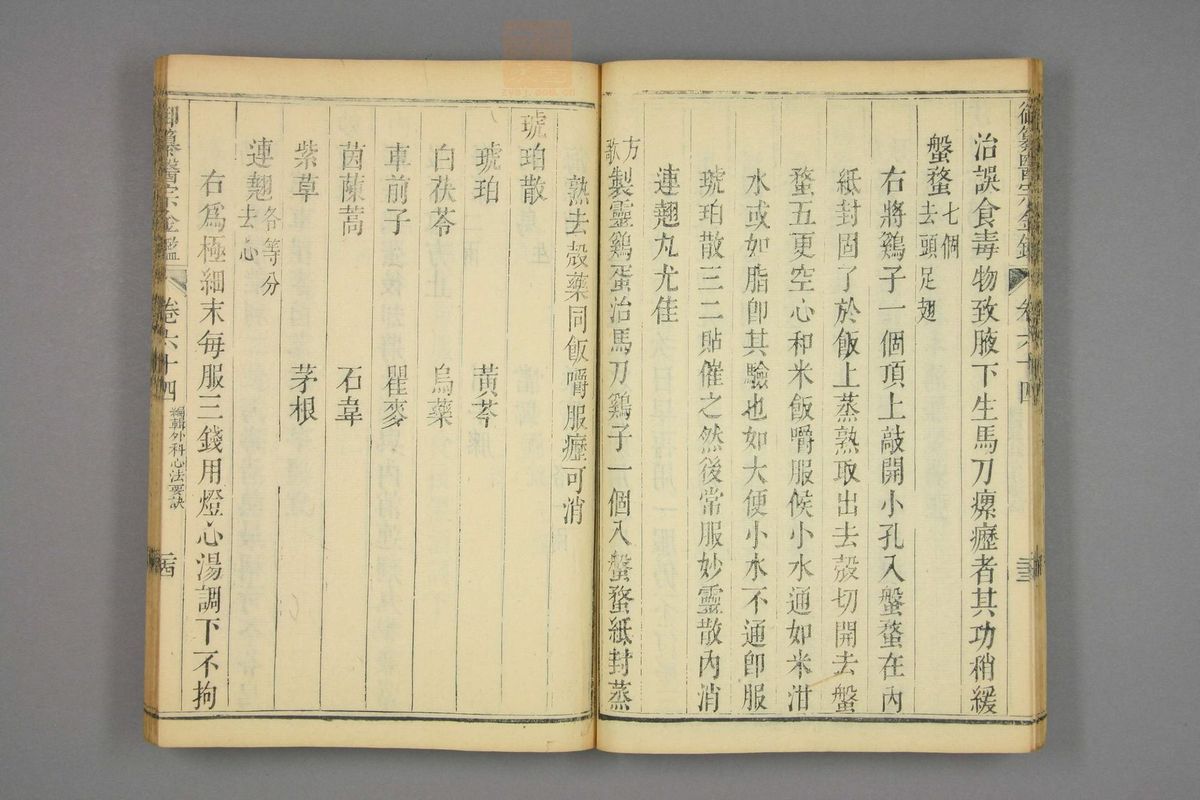 御纂醫宗金鑑 卷六十四 三三
治誤食毒物致腋下生馬刀瘰癧者其功稍緩
盤蝥七個去頭足翅
右將鷄子一個頂上敲開小孔入盤蝥在內
紙封固了於飯上蒸熟取出去殼切開去盤
蝥五更空心和米飯嚼服候小水通如米泔
水或如脂卽其驗也如大便小水不通卽服
琥珀散三二貼催之然後常服妙靈散內消
連翹丸尤佳
方歌製靈鷄蛋治馬刀鷄子一個入盤蝥紙封蒸
熟去殼藥同飯嚼服癧可消
琥珀散
琥珀 黃芩
白茯苓 烏藥
車前子 瞿麥
茵蔯蒿 石韋
紫草 茅根
連翹去心各等分
右爲極細末每服三錢用燈心湯調下不拘
御纂醫宗金鑑 卷六十四 編輯外科心法要訣 二四